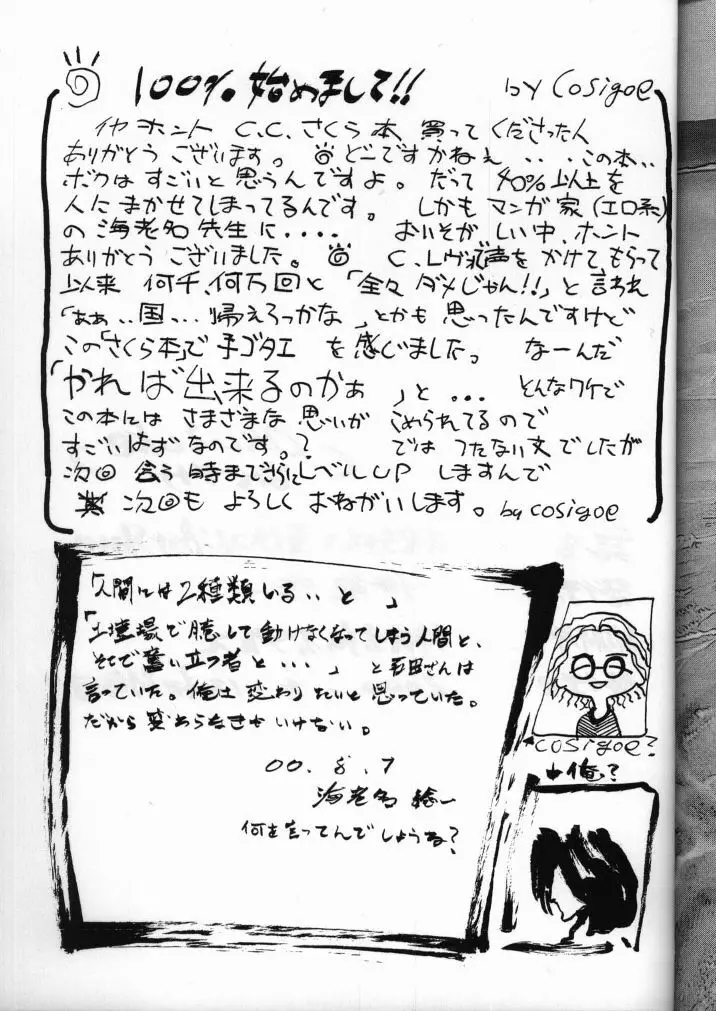 100%始めまして!! by Cosigoe
イヤ ホント C.C.さくら本 買って くださった人
ありがとう ございます。 どーですかねぇ ...この本..
ボクは すごいと 思うんですよ。 だって 40%以上を
人に まかせてしまってるんです。 しかも マンガ家(エロ系)
の 海老名 先生に.... おいそがしい中、ホント
ありがとう ございました。 C.レヴォで声を かけて もらって
以来 何千、何万回と 「全々 ダメじゃん!!」と 言われ
「あぁ..国...帰えろっかな」とかも 思ったんですけど
この「さくら本」で 手ゴタエ を 感じました。 なーんだ
「やれば出来るのかぁ」と... とんなワケで
この本には さまざまな 思いが こめられてるので
すごいはず なのです。? では つたない文でしたが
次回 会う 時まで さらに レベルUP しますんで
次回も よろしく おねがいします。by cosigoe
「人間には2種類いる..と」
「土壇場で臆して動けなくなってしまう人間と、
そこで奮い立つ者と...」 と さんは
言っていた。俺は 変わりたいと 思っていた。
だから変わらなきゃいけない。
00.8.7
海老名
何を言ってんでしょうね?
cosigoe?
俺?